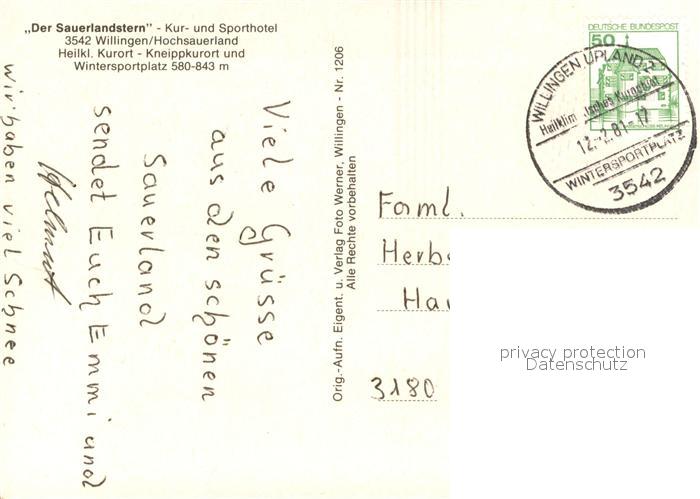 „Der Sauerlandstern" - Kur- und Sporthotel
3542 Willingen/Hochsauerland
Heilkl. Kurort - Kneippkurort und
Wintersportplatz 580-843 m
Viele Grüsse
aus den schönen
Sauerland
sendet Euch Emmi und
Helmut
wir haben viel Schnee
Orig.-Aufn. Eigent. u. Verlag Foto Werner, Willingen - Nr. 1206
Alle Rechte vorbehalten
DEUTSCHE BUNDESPOST
50
WILLINGEN UPLAND 2
Heilklim
12.
81-17
WINTERSPORTPLATZ
3542
Faml.
3180
privacy protection
Datenschutz